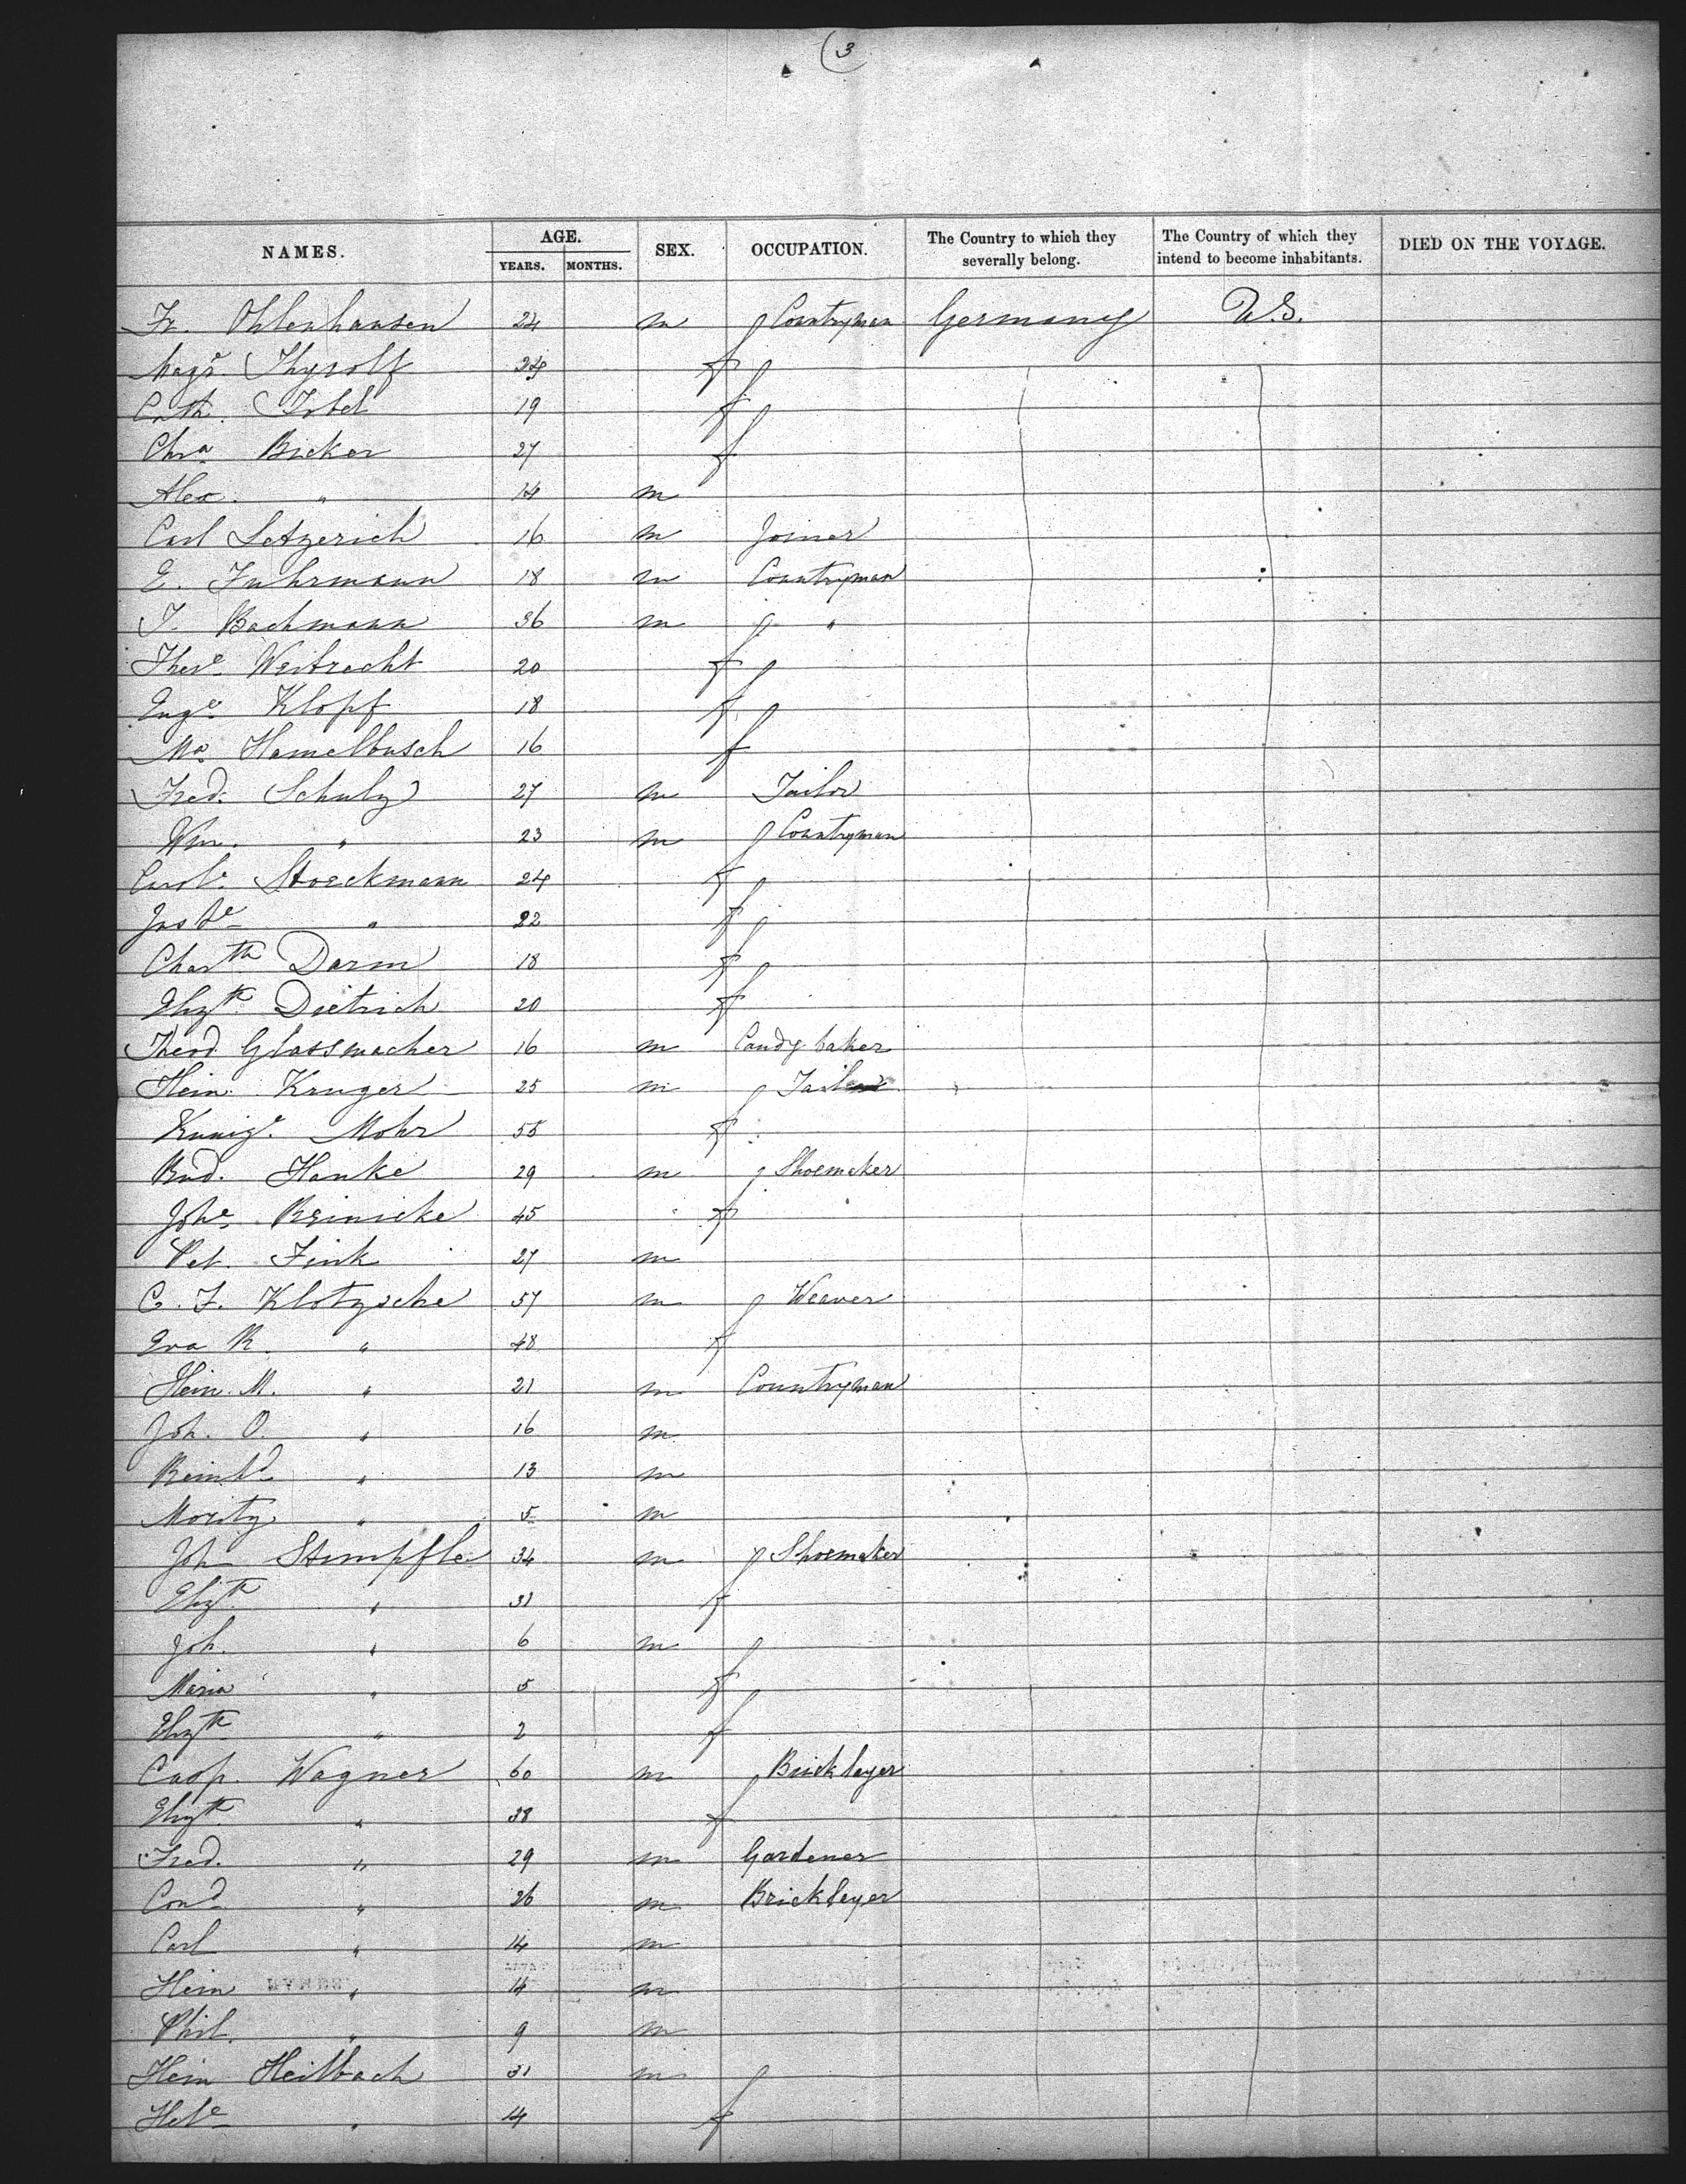 (3
NAMES. AGE. YEARS. MONTHS. SEX. OCCUPATION. The Country to which they severally belong. The Country of which they intend to become inhabitants. DIED ON THE VOYAGE.
Fr. Ohlenhausen 24 m Countryman Germany U.S.
Magr. Thyrolf 24 f
Cath. Isbel 19 f
Chra Bicker 27 f
Alex. " 14 m
Carl Letzerich 16 m Joiner
E. Fuhrmann 18 m Countryman
J. Bachmann 36 m "
These Weitracht 20 f
Euge. Klopf 18 f
Ma. Hamelbusch 16 f
Fred. Schulz 27 m Tailor
Wm. " 23 m Countryman
Carole. Stoeckmann 24 f
Juste " 22 f
Charth Darm 18 f
Elizth Dietrich 20 f
Theod Glassmacher 16 m Candy baker
Hein. Kruger 25 m Tailor
Kunige. Mohr 55 f
Rud. Hanke 29 m Shoemaker
Johe. Reinicke 45 f
Pet. Fink 27 m
C. F. Klotzsche 57 m Weaver
Eva R. " 48 f
Hein. M. " 21 m Countryman
Joh. O. " 16 m
Reinhd " 13 m
Moritz " 5 m
Joh Stumpfle 34 m Shoemaker
Elizth " 31 f
Joh. " 6 m
Maria " 5 f
Elizth " 2 f
Casp. Wagner 60 m Bricklayer
Elizth " 38 f
Fred. " 29 m Gardener
Cond " 26 m Bricklayer
Carl " 14 m
Hein " 14 m
Phil. " 9 m
Hein Heilbach 31 m
Hele " 14 f